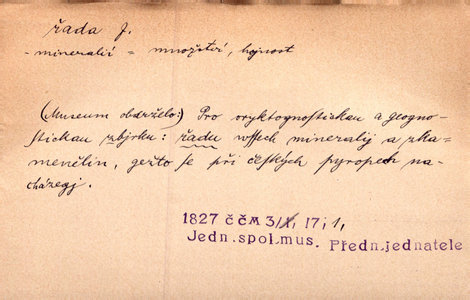 řada f.
- mineralií = množství, hojnost
(Museum obdrželo:) Pro oryktognostickau a geogno-
stickau zbjrku: řadu wssech mineralij a zka-
menělin, gežto se při českých pyropech na-
cházegj.
1827 ččM 3/I, 17, 1,
Jedn.spol.mus. Předn.jednatele